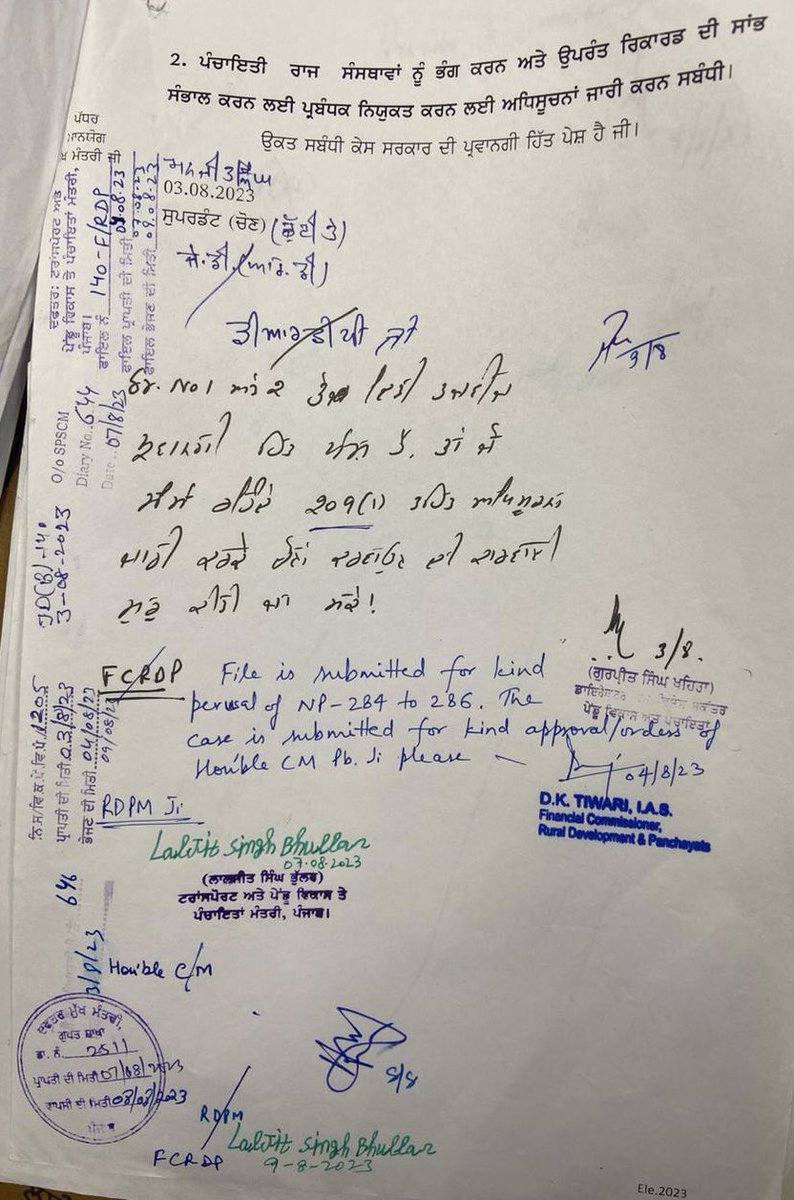 2. ਪੰਚਾਇਤੀ ਰਾਜ ਸੰਸਥਾਵਾਂ ਨੂੰ ਭੰਗ ਕਰਨ ਅਤੇ ਉਪਰੰਤ ਰਿਕਾਰਡ ਦੀ ਸਾਂਭ
ਸੰਭਾਲ ਕਰਨ ਲਈ ਪ੍ਰਬੰਧਕ ਨਿਯੁਕਤ ਕਰਨ ਲਈ ਅਧਿਸੂਚਨਾਂ ਜਾਰੀ ਕਰਨ ਸਬੰਧੀ।
ਉਕਤ ਸਬੰਧੀ ਕੇਸ ਸਰਕਾਰ ਦੀ ਪ੍ਰਵਾਨਗੀ ਹਿੱਤ ਪੇਸ਼ ਹੈ ਜੀ।
03.08.2023
ਸੁਪਰਡੰਟ (ਚੋਣ)
ਜੇ.ਡੀ. (ਆਰ.ਡੀ)
ਡੀਆਰਡੀਪੀ ਜੀ
3/8
209(1) ਤਹਿਤ
ਜਾਰੀ ਕਰਕੇ ਚੋਣਾਂ ਕਰਵਾਉਣ ਦੀ ਕਾਰਵਾਈ
ਸ਼ੁਰੂ ਕੀਤੀ ਜਾ ਸਕੇ!
3/8.
(ਗੁਰਪੀਤ ਸਿੰਘ ਖਹਿਰਾ)
ਪੇਂਡੂ ਵਿਕਾਸ ਅਤੇ ਪੰਚਾਇਤਾਂ
FCRDP File is submitted for kind
perusal of NP-284 to 286. The
case is submitted for kind approval/orders of
Hon'ble CM Pb. Ji please
04/8/23
D.K. TIWARI, I.A.S.
Financial Commissioner,
Rural Development & Panchayats
RDPM Ji
Laljit Singh Bhullar
07.08.2023
(ਲਾਲਜੀਤ ਸਿੰਘ ਭੁੱਲਰ)
ਟਰਾਂਸਪੋਰਟ ਅਤੇ ਪੇਂਡੂ ਵਿਕਾਸ ਤੇ
ਪੰਚਾਇਤਾਂ ਮੰਤਰੀ, ਪੰਜਾਬ।
Hon'ble C/M
8/8
RDPM
Laljit Singh Bhullar
9-8-2023
FCRDP
ਦਫ਼ਤਰ ਮੁੱਖ ਮੰਤਰੀ,
ਗੁਪਤ ਸ਼ਾਖਾ
ਡਾ. ਨੰ. 2511
ਪ੍ਰਾਪਤੀ ਦੀ ਮਿਤੀ 07/08/2023
ਵਾਪਸੀ ਦੀ ਮਿਤੀ 08/08/2023
ਪੰਜਾਬ
ਪੱਧਰ
ਮਾਨਯੋਗ
ਮੰਤਰੀ ਜੀ
ਦਫ਼ਤਰ: ਟਰਾਂਸਪੋਰਟ ਅਤੇ
ਪੇਂਡੂ ਵਿਕਾਸ ਤੇ ਪੰਚਾਇਤਾਂ ਮੰਤਰੀ,
ਪੰਜਾਬ।
ਫਾਇਲ ਨੰ 140-F/RDP
ਫਾਇਲ ਪ੍ਰਾਪਤੀ ਦੀ ਮਿਤੀ 07.08.23
ਫਾਇਲ ਭੇਜਣ ਦੀ ਮਿਤੀ 09.08.23
O/o SPSCM
Diary No. 644
Date 07/8/23
JD(B)-140
3-08-2023
1205
ਪ੍ਰਾਪਤੀ ਦੀ ਮਿਤੀ 03/8/23
ਭੇਜਣ ਦੀ ਮਿਤੀ 04/08/23
09/08/23
646
Ele.2023